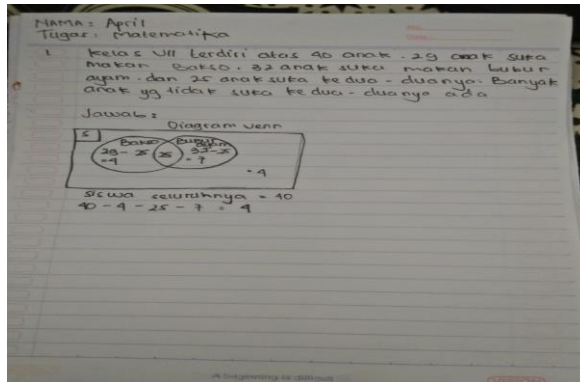 NAMA : April
Tugas : Matematika
1. Kelas VII terdiri atas 40 anak. 29 anak suka
makan Bakso. 32 anak suka makan bubur
ayam. dan 25 anak suka kedua - duanya. Banyak
anak yg tidak suka kedua - duanya ada
Jawab :
Diagram Venn
S
Bakso Bubur ayam
29 - 25 25 32 - 25
= 4 = 7
= 4
siswa seluruhnya = 40
40 - 4 - 25 - 7 = 4
A beginning is difficult